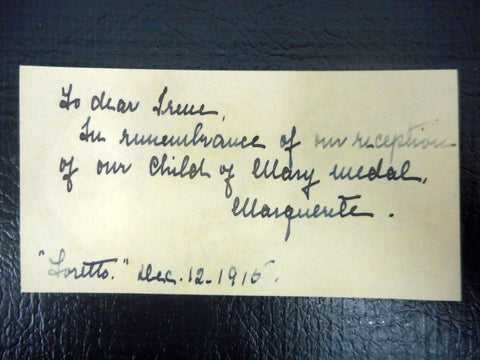 To dear Irene,
In remembrance of our reception
of our Child of Mary medal.
Marguerite.
"Loretto." Dec. 12-1915.